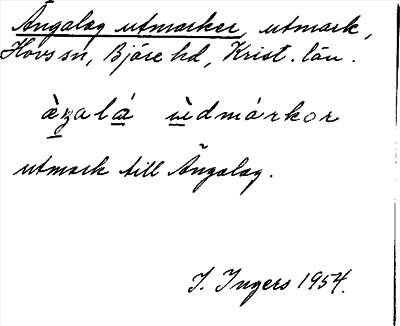 Ängalag utmarker, utmark,
Hovs sn, Bjäre hd, Krist. län.
àzalá ùdmárkor
utmark till Ängalag.
I. Ingers 1954.